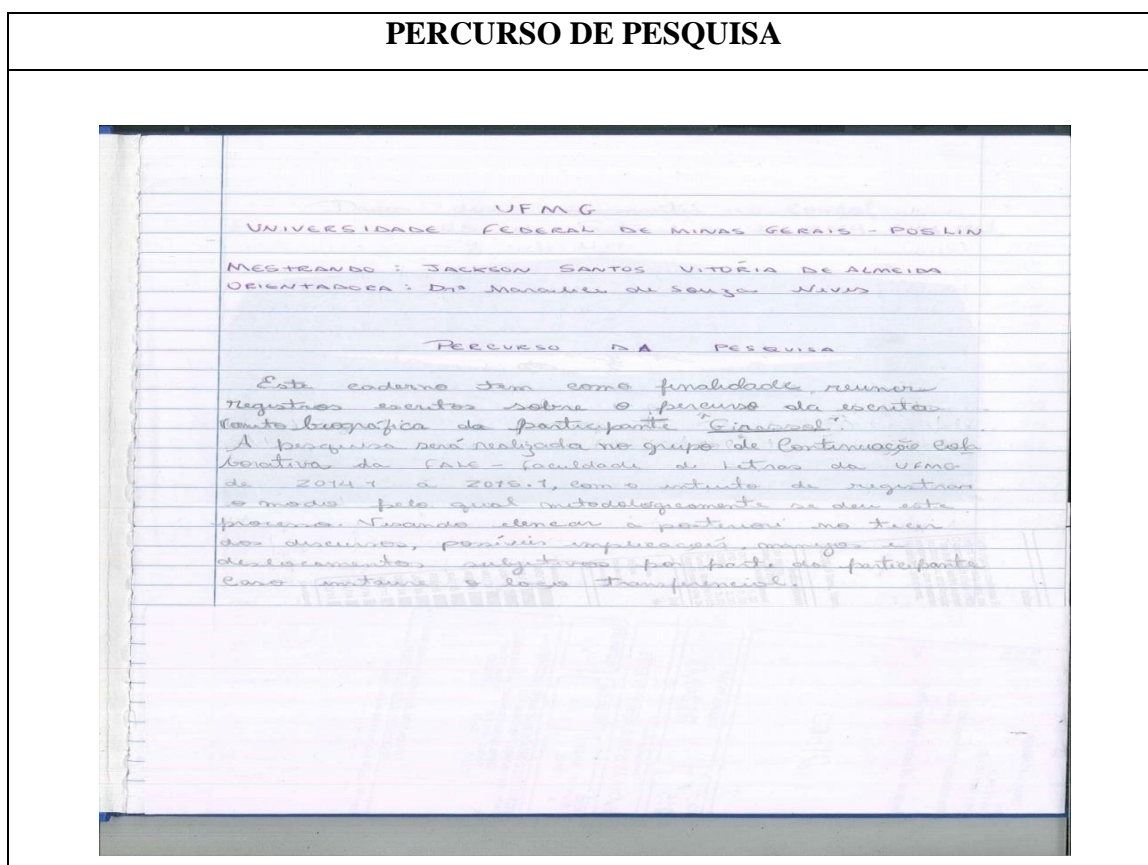 PERCURSO DE PESQUISA
UFMG
UNIVERSIDADE FEDERAL DE MINAS GERAIS - POSLIN
MESTRANDO : JACKSON SANTOS VITÓRIA DE ALMEIDA
ORIENTADORA : Drª Maralice de Souza Neves
PERCURSO DA PESQUISA
Este caderno tem como finalidade reunir
registros escritos sobre o percurso da escrita
(auto)biografica da participante "Girassol".
A pesquisa será realizada no grupo de Continuação Cola
borativa da FALE - Faculdade de Letras da UFMG
de 2014.1 a 2015.1, com o intuito de registrar
o modo pelo qual metodologicamente se deu este
processo. Visando elencar a posteriori no tecer
dos discursos, possíveis implicações, manejos e
deslocamentos subjetivos por parte da participante
caso instaure o laço transferencial.